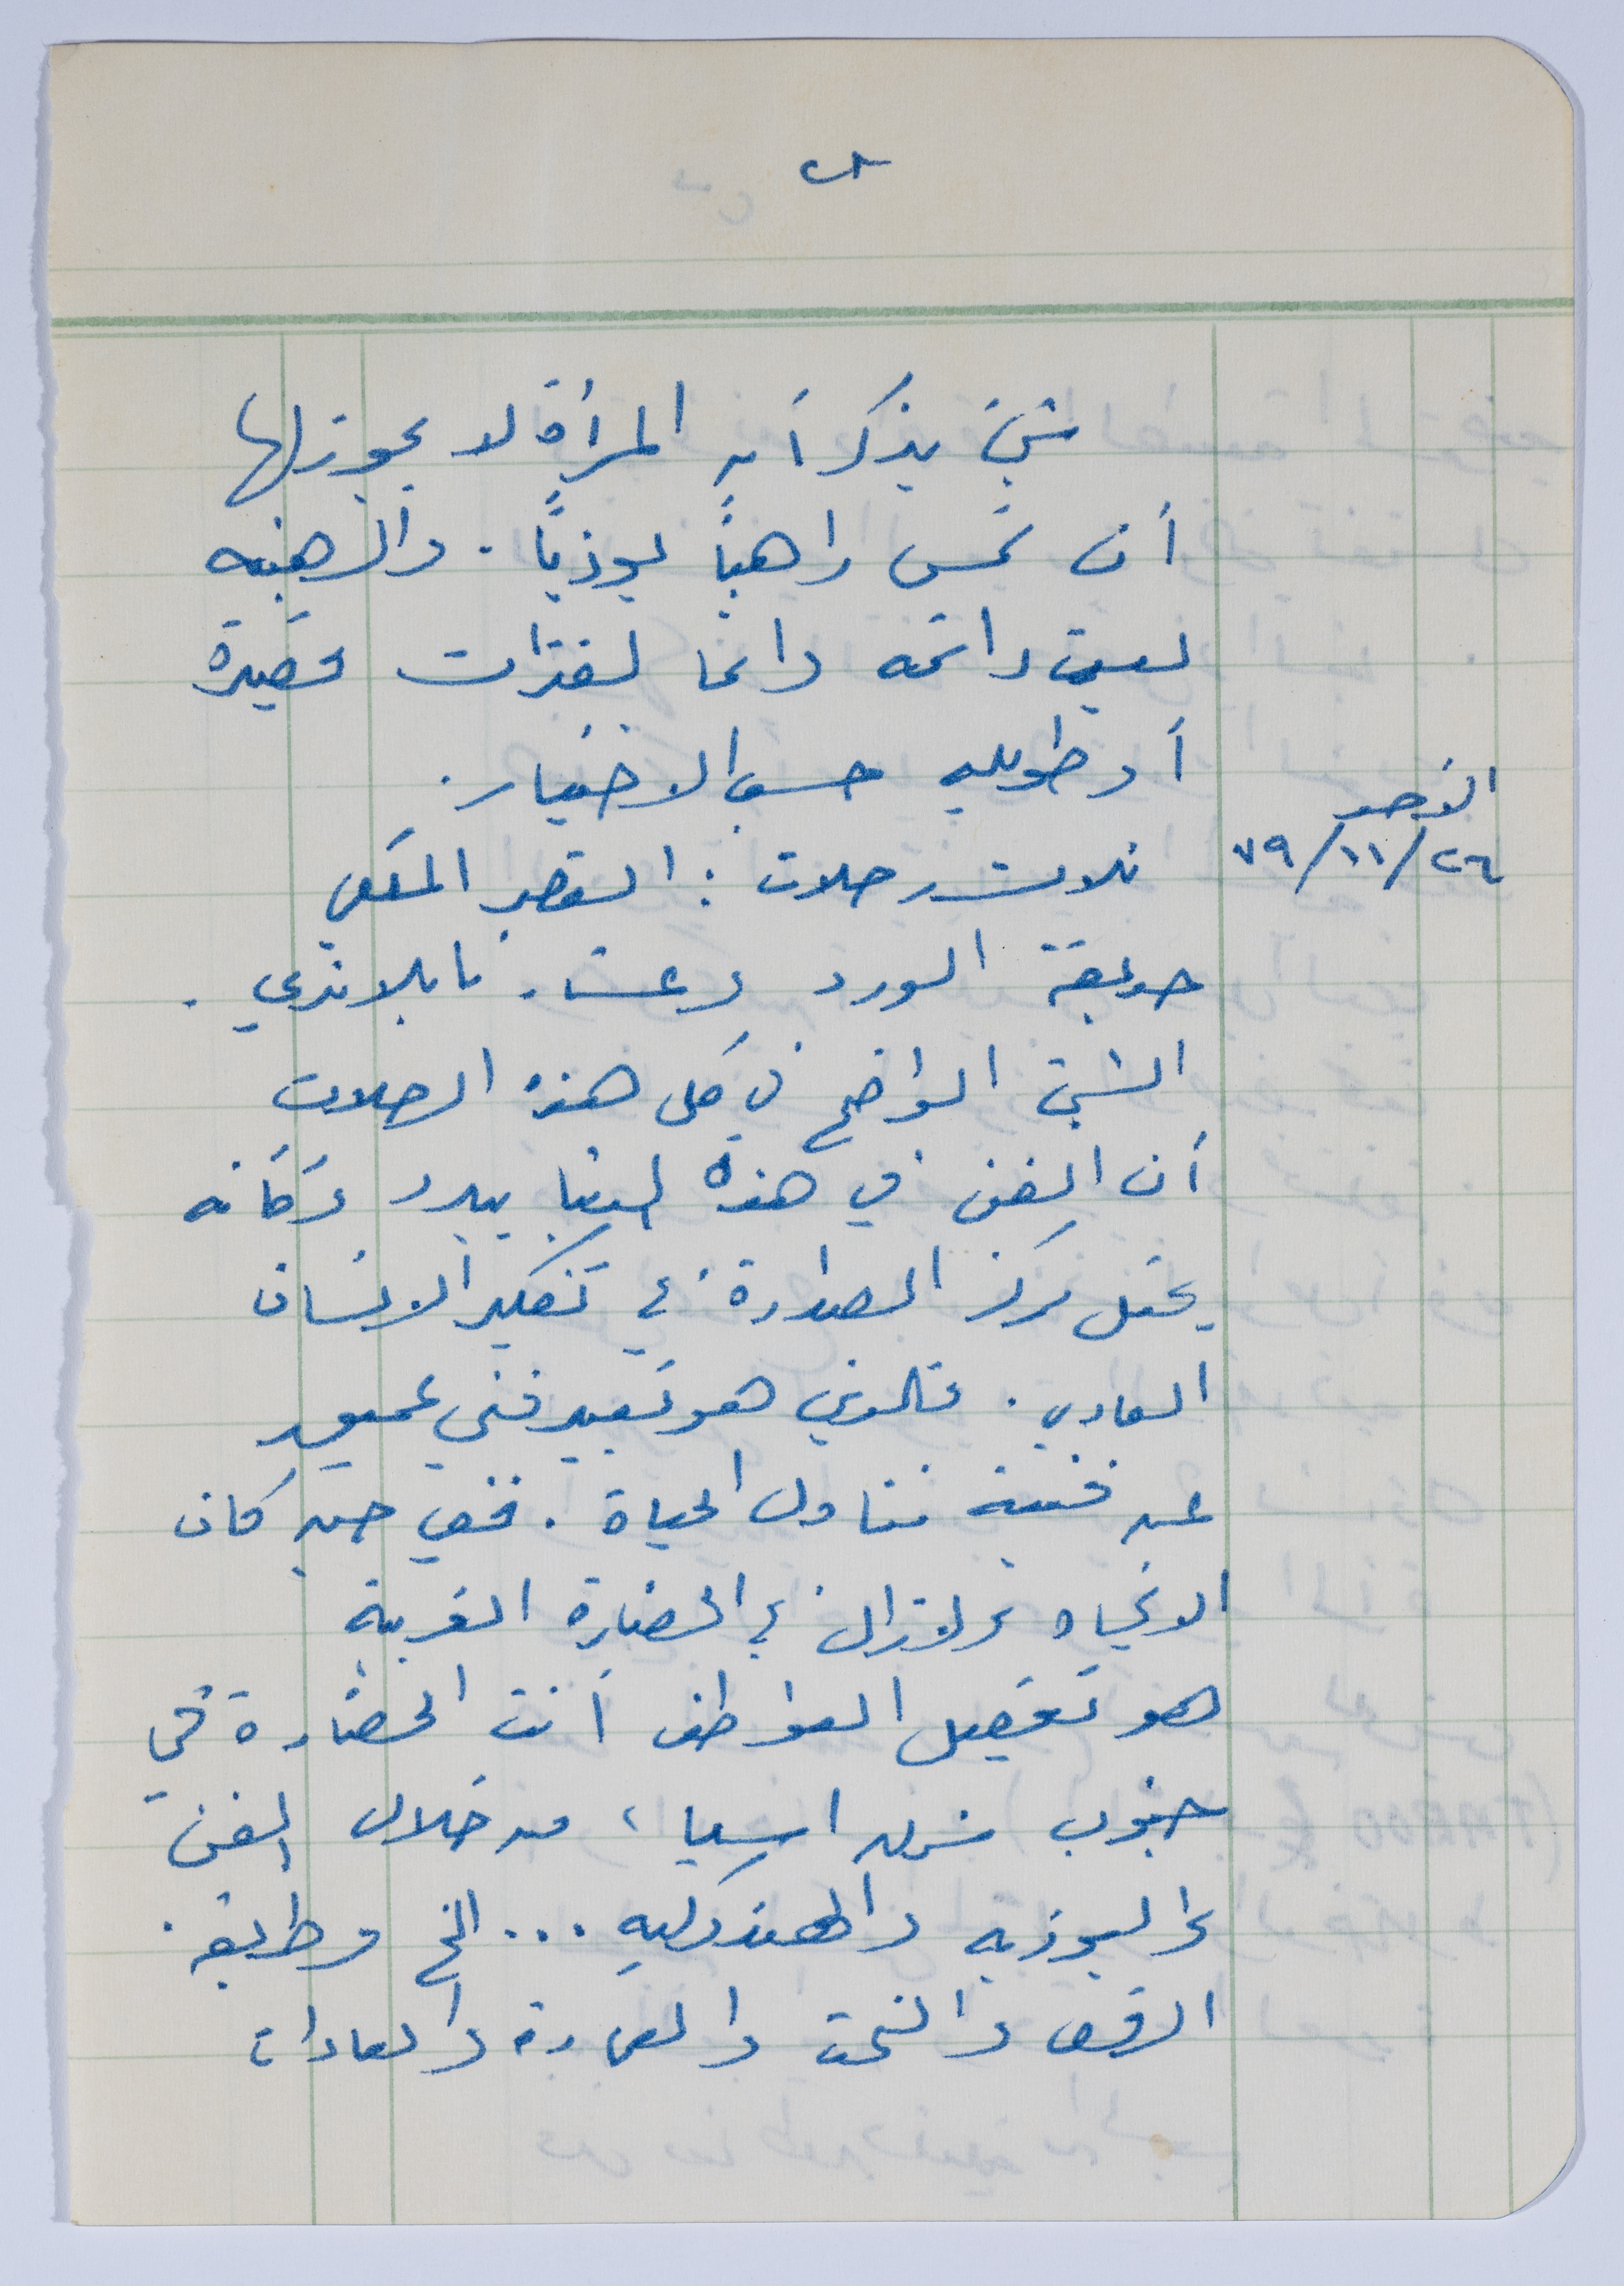 شيئ يذكر أن المرأة لا يجوز لها
أن تمس راهباً بوذياً. والرهبنه
ليست دائمه دائما لفترات قصيرة
أو طويله حسب الاختيار.
الأحد
٢٦/١١/٧٩
ثلاث رحلات : القصر الملكي
حديقة الورد وعشاء تايلاندي.
الشيئ الواضح في كل هذه الرحلات
أن الفن في هذه البلاد يبدو وكأنه
يحتل مركز الصدارة في تفكير الانسان
العادي. فالبوذي هو تعبير فني عميق
عن فنية تناول الحياة. ففي حين كان
الاتجاه ولازال في الحضارة الغربية
هو تفصيل العواطف أتت الحضارة في
جنوب شرق اسيا، من خلال الفن
والبوذيه والهندوكيه... الخ وطريقة
الرقص والنحت والعمارة والعادات